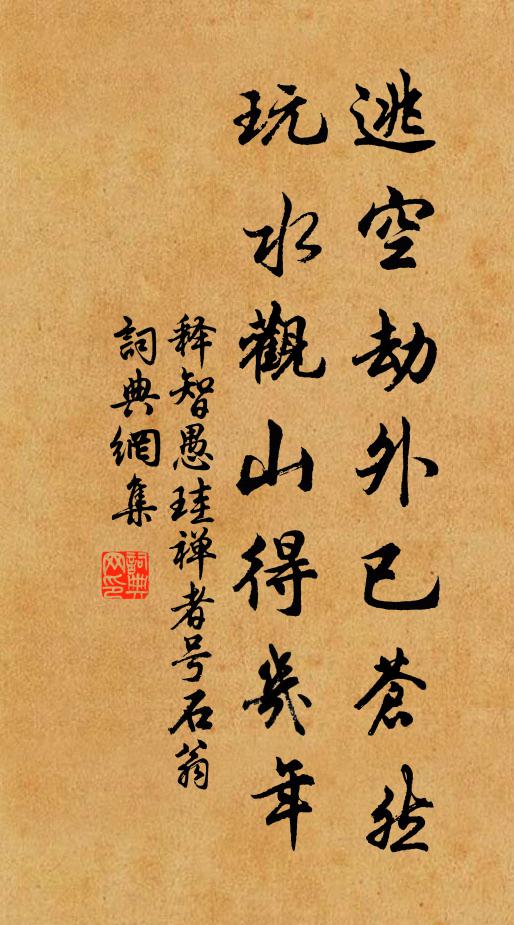 逃空劫外已蒼然
玩水觀山得幾年
释智愚珪禅者号石翁
詞典網集
詞典網印